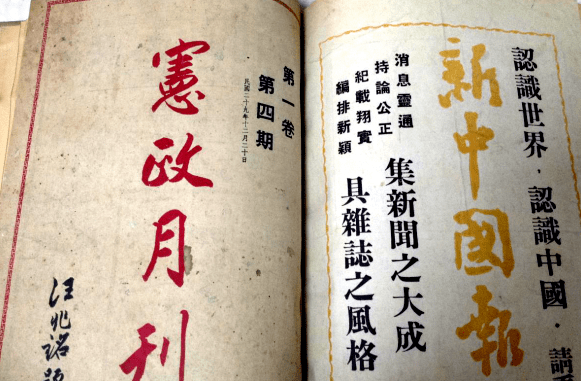 認識世界，認識中國．請
新中國報
消息靈通
持論公正
紀載翔實
編排新穎
集新聞之大成
具雜誌之風格
第一卷
第四期
民國二十九年十二月二十日
憲政月刊
汪兆銘題